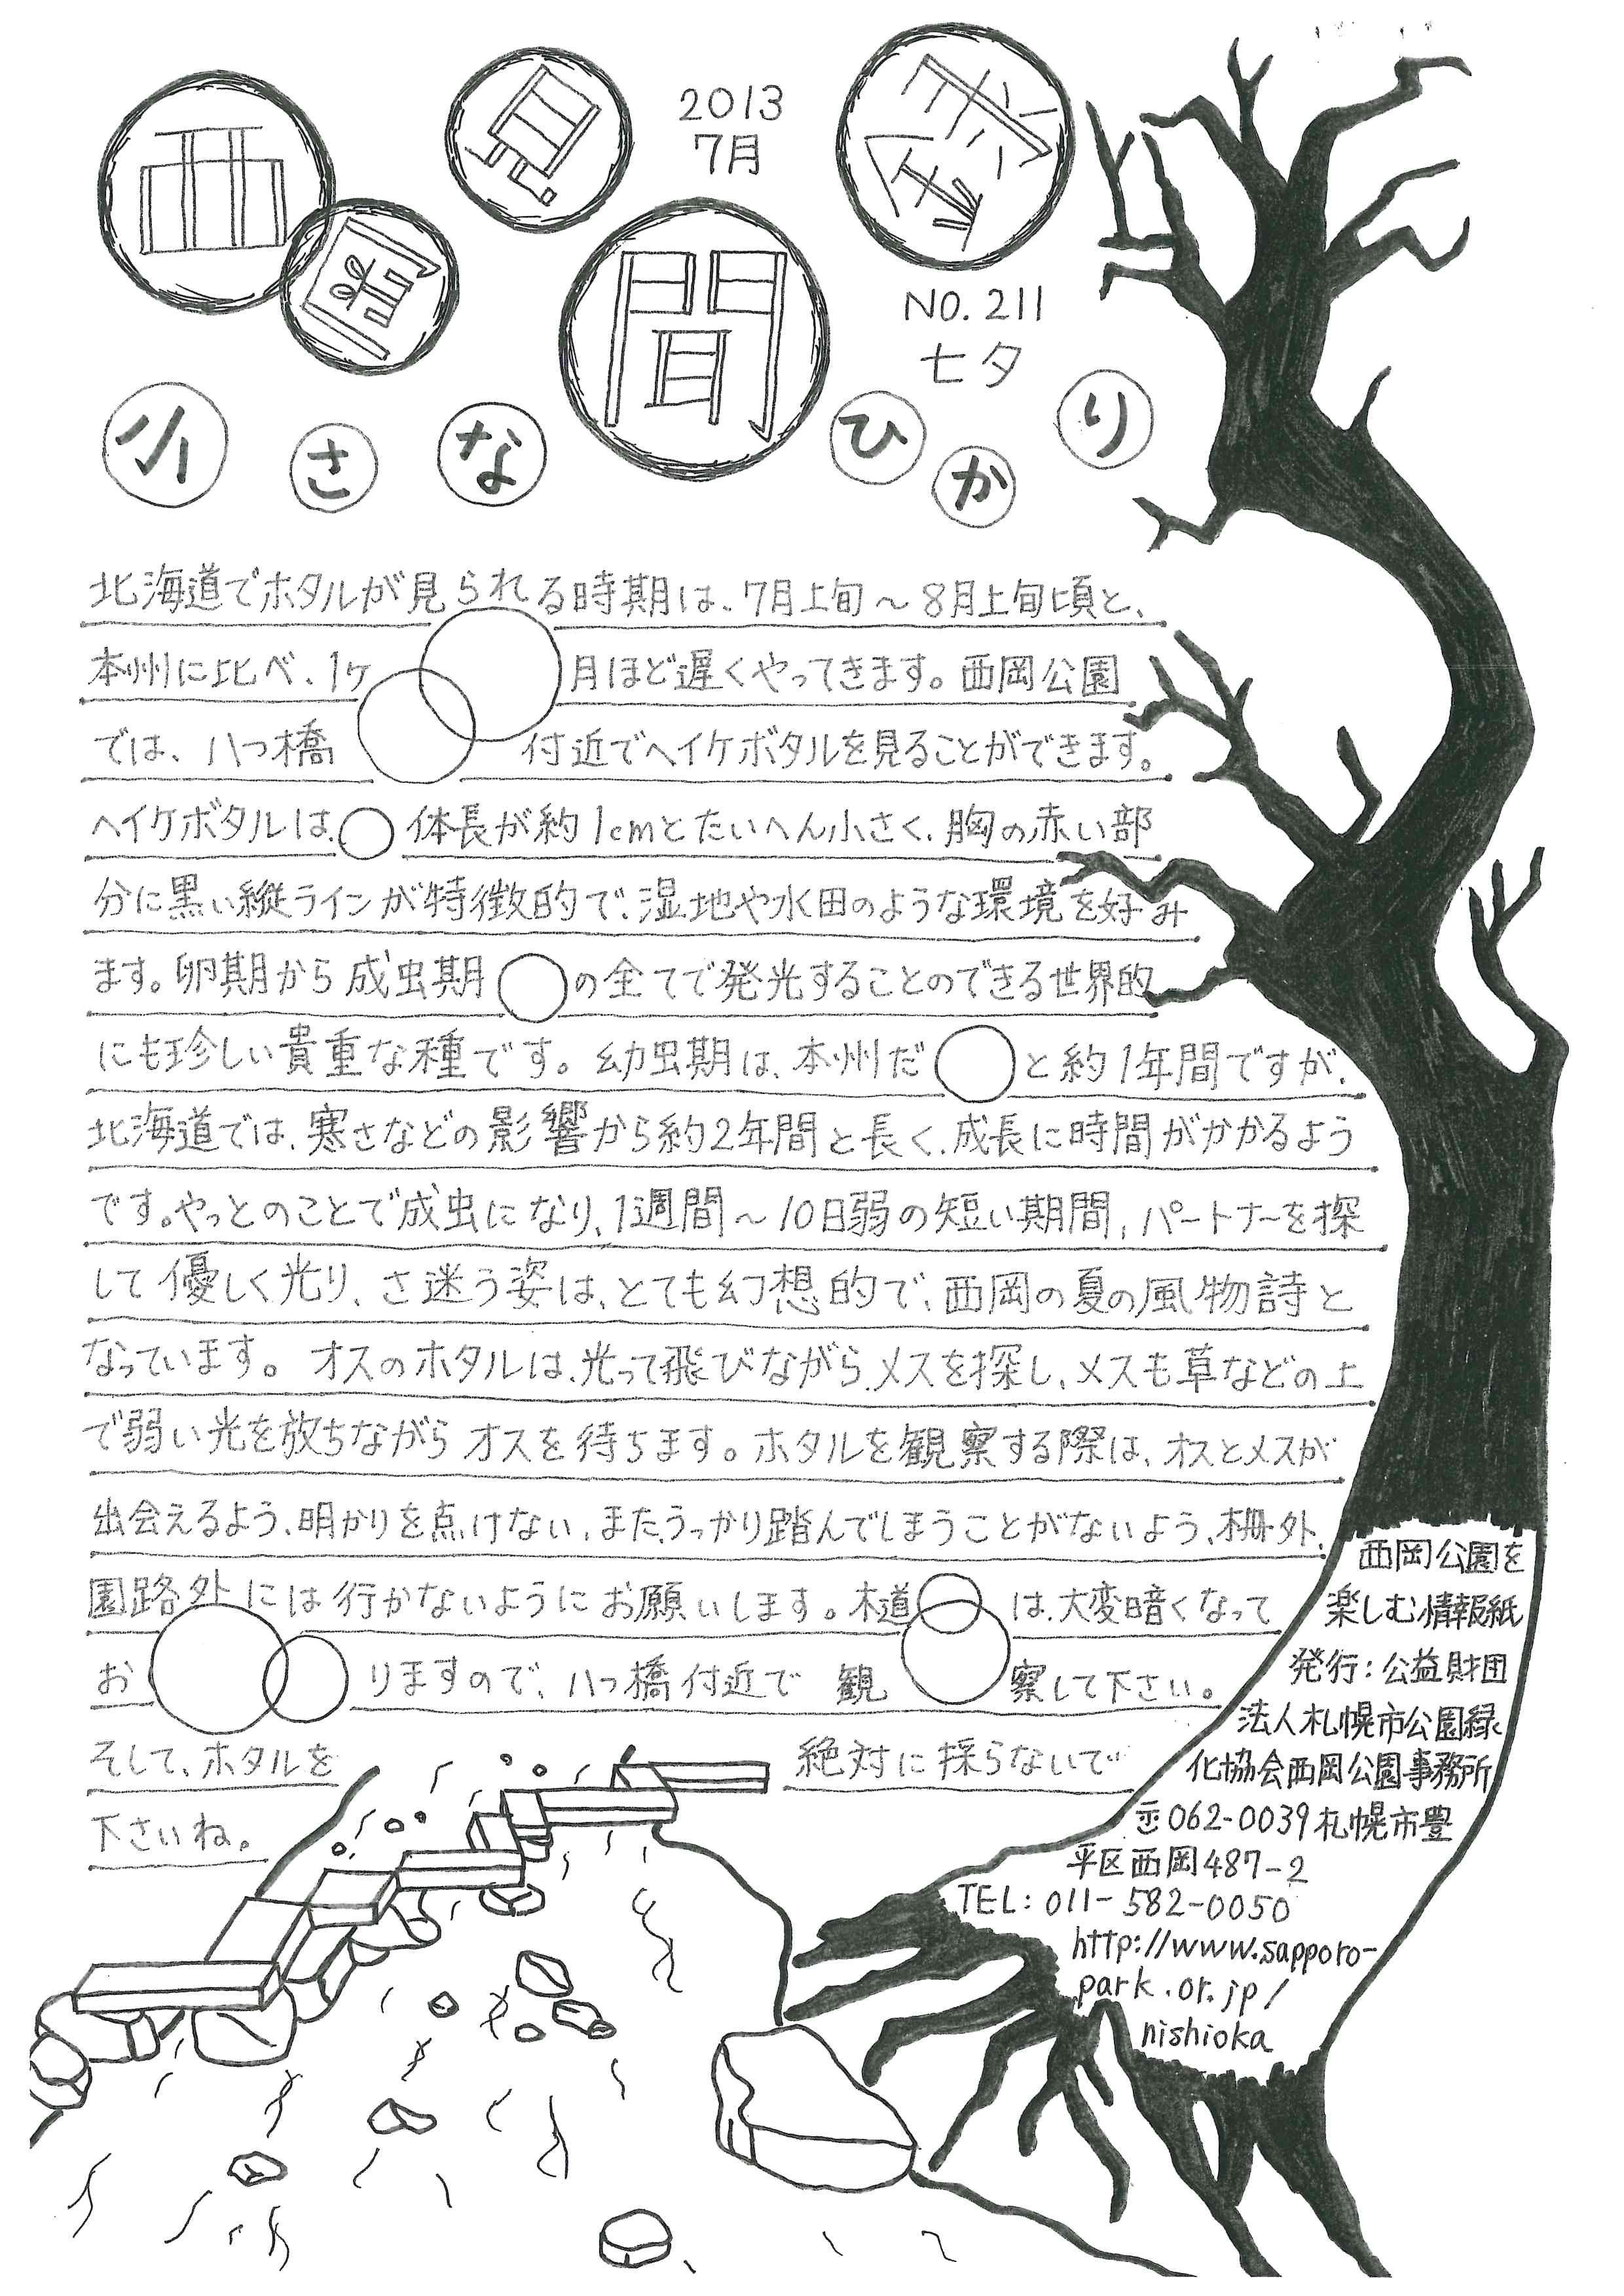 西岡見聞録
2013
7月
NO.211
七夕
小さなひかり
北海道でホタルが見られる時期は、7月上旬～8月上旬頃と、
本州に比べ、1ヶ月ほど遅くやってきます。西岡公園
では、八つ橋付近でヘイケボタルを見ることができます。
ヘイケボタルは、体長が約1cmとたいへん小さく、胸の赤い部
分に黒い縦ラインが特徴的で、湿地や水田のような環境を好み
ます。卵期から成虫期の全てで発光することのできる世界的
にも珍しい貴重な種です。幼虫期は、本州だと約1年間ですが、
北海道では、寒さなどの影響から約2年間と長く、成長に時間がかかるよう
です。やっとのことで成虫になり、1週間～10日弱の短い期間、パートナーを探
して優しく光り、さ迷う姿は、とても幻想的で、西岡の夏の風物詩と
なっています。オスのホタルは、光って飛びながら、メスを探し、メスも草などの上
で弱い光を放ちながらオスを待ちます。ホタルを観察する際は、オスとメスが
出会えるよう、明かりを点けない、また、うっかり踏んでしまうことがないよう、柵外、
園路外には行かないようにお願いします。木道は、大変暗くなって
おりますので、八つ橋付近で観察して下さい。
そして、ホタルを絶対に採らないで
下さいね。
西岡公園を
楽しむ情報紙
発行：公益財団
法人札幌市公園緑
化協会西岡公園事務所
〒062-0039札幌市豊
平区西岡487-2
TEL：011-582-0050
http://www.sapporo-
park.or.jp/
nishioka